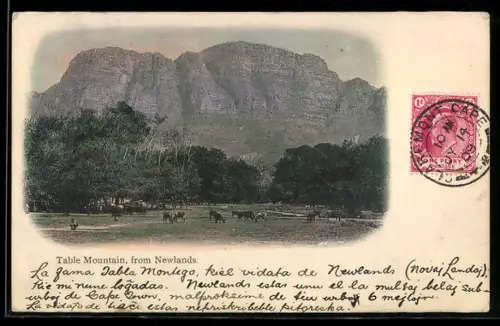 Table Mountain, from Newlands.
La fama Tabla Montego, kiel vidata de Newlands (Novaj Landoj),
kie mi nune loĝadas. Newlands estas unu el la multaj belaj sub-
urboj de Cape Town, malproksime de tiu urbo 6 mejlojn.
La vidato de tie ĉi estas nepriskribeble pitoreska.
CLAREMONT CAPE
ONE PENNY